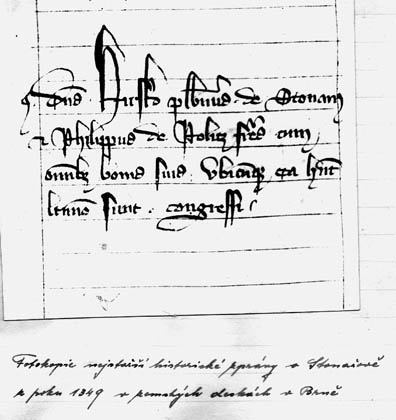 Dns Hirsko plbanus de Stonarz
Philippus de Rohcz fres cum
omnibz bonis suis vbicuqz ea hnt
sunt congressi
Fotokopie nejstarší historické zprávy o Stonařově
z roku 1349 v zemských deskách v Brně